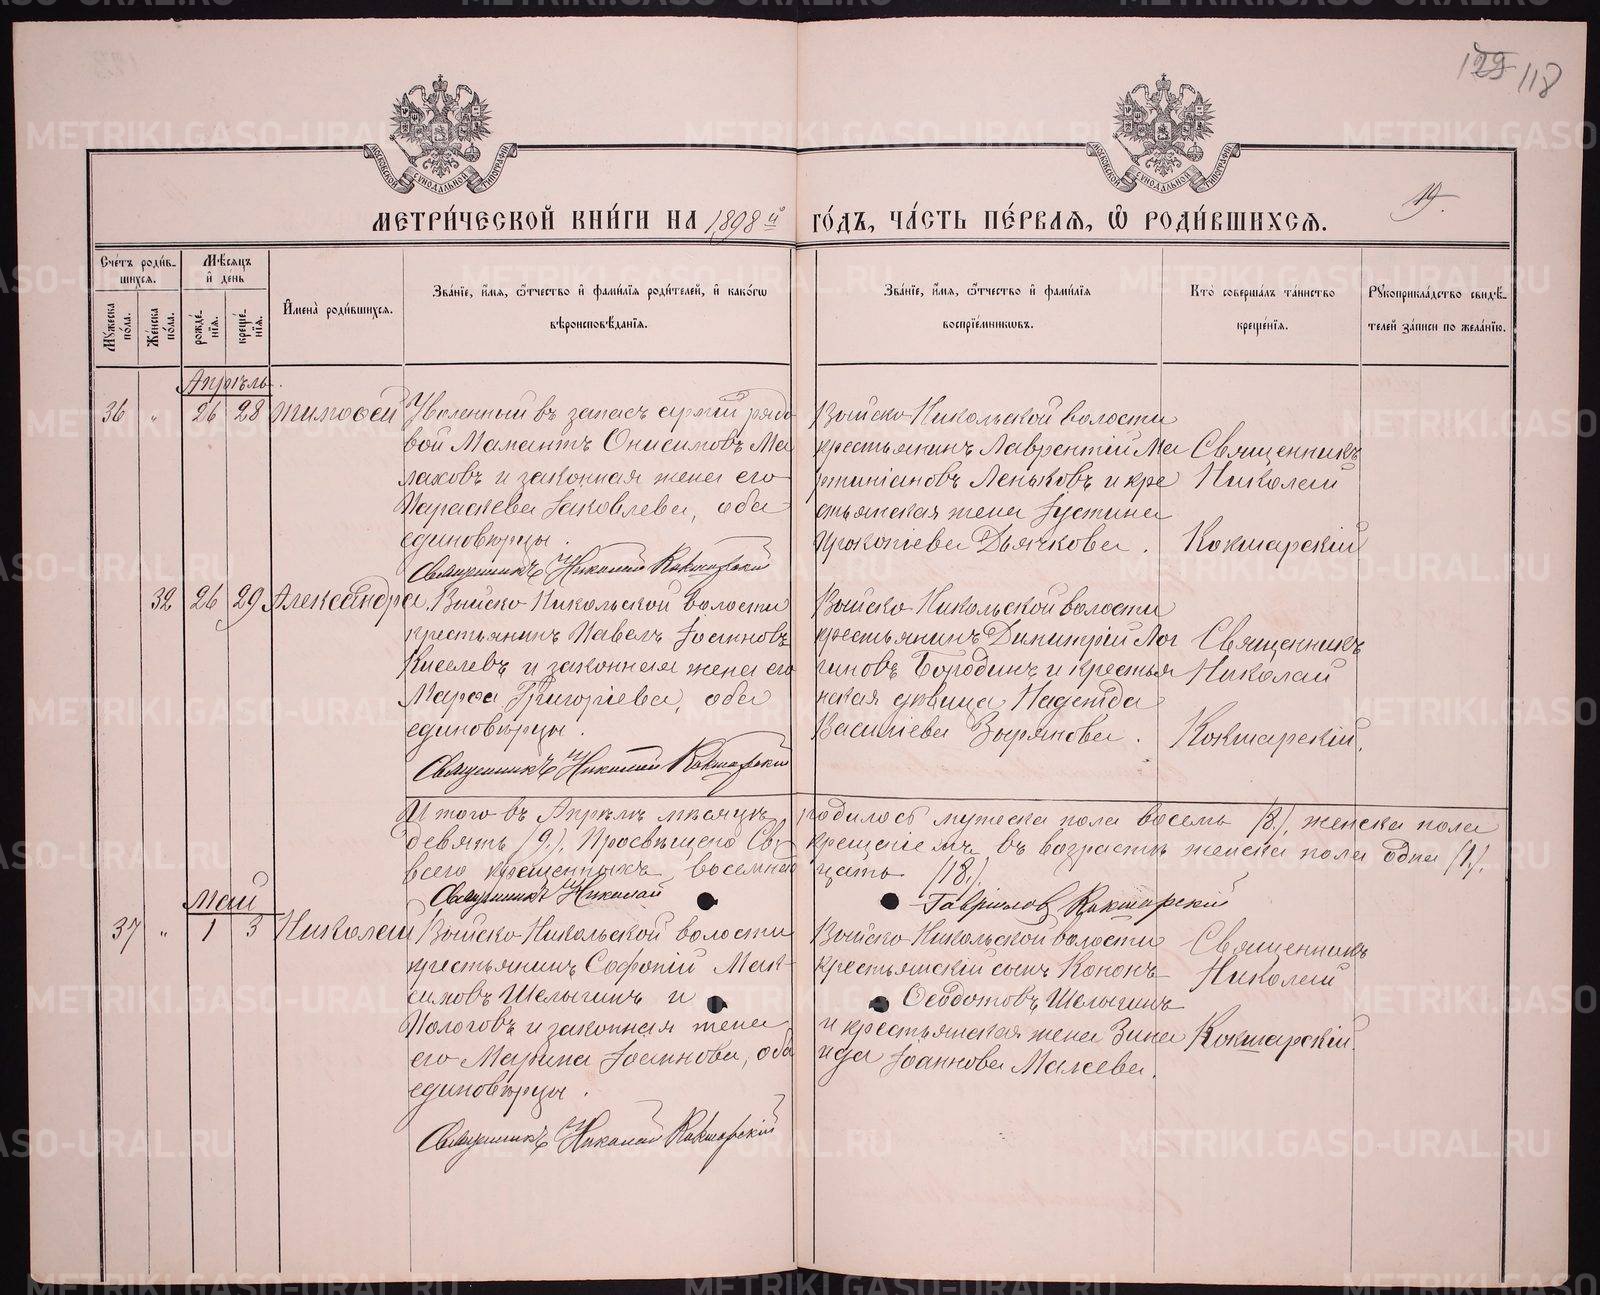 129 118
19.
МОСКОВСКОЙ СѴНОДАЛЬНОЙ ТИПОГРАФІИ
МОСКОВСКОЙ СѴНОДАЛЬНОЙ ТИПОГРАФІИ
МЕТРИ́ЧЕСКОЙ КНИ́ГИ НА 1898й ГО́ДЪ, ЧА́СТЬ ПЕ́РВАѦ, Ѡ҆ РОДИ́ВШИХСѦ.
Сче́тъ роди́в-
шихсѧ.
Мѹ́жеска по́ла.
Же́нска по́ла.
Мѣ́сѧцъ
и҆ де́нь
рожде́-
нїѧ.
креще́-
нїѧ.
И҆мена̀ роди́вшихсѧ.
Зва́нїе, и҆́мѧ, ѻ҆́тчество и҆ фами́лїѧ роди́телей, и҆ како́гѡ
вѣроисповѣ́данїѧ.
Зва́нїе, и҆́мѧ, ѻ҆́тчество и҆ фами́лїѧ
воспрїе́мникѡвъ.
Кто̀ соверша́лъ та́инство
креще́нїѧ.
Рѹкоприкла́дство свидѣ́-
телей за́писи по жела́нїю.
Апрѣль.
36 " 26 28 Тимофей
Уволенный въ запасъ армій рядо
вой Мамантъ Онисимовъ Ма
лаховъ и законная жена его
Параскева Іаковлева, оба
единовѣрцы.
Священникъ Николай Кокшарскій
Выйско-Никольской волости
крестьянинъ Лаврентій Ма
ртиніановъ Леньковъ и кре
стьянская жена Іустина
Прокопьева Дьячкова.
Священникъ
Николай
Кокшарскій
32 26 29 Александра
Выйско-Никольской волости
крестьянинъ Павелъ Іоанновъ
Киселевъ и законная жена его
Марфа Григоріева, оба
единовѣрцы.
Священникъ Николай Кокшарскій
Выйско-Никольской волости
крестьянинъ Димитрій Лог
гиновъ Бородинъ и крестья
нская дѣвица Надежда
Василіева Зырянова.
Священникъ
Николай
Кокшарскій.
Итого въ Апрѣлѣ мѣсяцѣ родилось мужеска пола восемь /8/, женска пола
девять /9./. Просвѣщено Св. крещеніемъ въ возрастѣ женска пола одна /1./.
всего крещенныхъ восемнадцать /18./.
Священникъ Николай Гавріиловъ Кокшарскій
Май
37 " 1 3 Николай
Выйско-Никольской волости
крестьянинъ Софоній Мак-
симовъ Шелыгинъ и
Пологовъ и законная жена
его Марина Іоаннова, оба
единовѣрцы.
Священникъ Николай Кокшарскій
Выйско-Никольской волости
крестьянскій сынъ Кононъ
Ѳеодотовъ Шелыгинъ
и крестьянская жена Зина
ида Іоаннова Малеева.
Священникъ
Николай
Кокшарскій.
METRIKI.GASO-URAL.RU